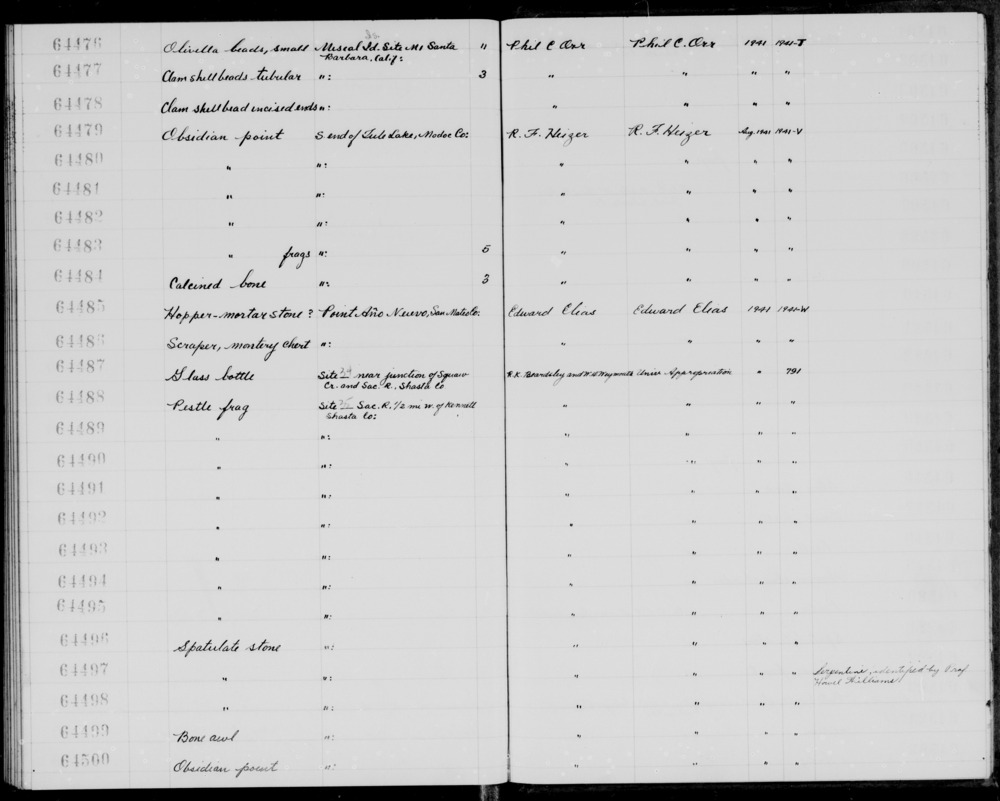 64476 Olivella beads, small Mescal Id. Site M1 Santa Barbara, Calif: " Phil C Orr Phil C. Orr 1941 1941-T
64477 Clam shell beads tubular ": 3 " " " "
64478 Clam shell bead incised ends ": " " " "
64479 Obsidian point S end of Tule Lake, Modoc Co: R. F. Heizer R. F. Heizer Aug. 1941 1941-V
64480 " ": " " " "
64481 " ": " " " "
64482 " ": " " " "
64483 " frags ": 5 " " " "
64484 Calcined bone ": 3 " " " "
64485 Hopper-mortar stone? Point Año Nuevo, San Mateo Co: Edward Elias Edward Elias 1941 1941-W
64486 Scraper, montery chert ": " " " "
64487 Glass bottle Site 24 near junction of Squaw Cr. and Sac. R., Shasta Co R.K. Beardsley and Univ. Appropriation " 791
64488 Pestle frag Site Sac. R. 1/2 mi w. of Kennett Shasta Co: " " " "
64489 " ": " " " "
64490 " ": " " " "
64491 " ": " " " "
64492 " ": " " " "
64493 " ": " " " "
64494 " ": " " " "
64495 " ": " " " "
64496 Spatulate stone ": " " " "
64497 " ": " " " " Serpentine, identified by Prof Howel Williams
64498 " ": " " " "
64499 Bone awl ": " " " "
64500 Obsidian point ": " " " "